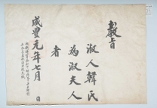 敎旨
淑人韓氏
為淑夫人
者
咸豐元年七月　日